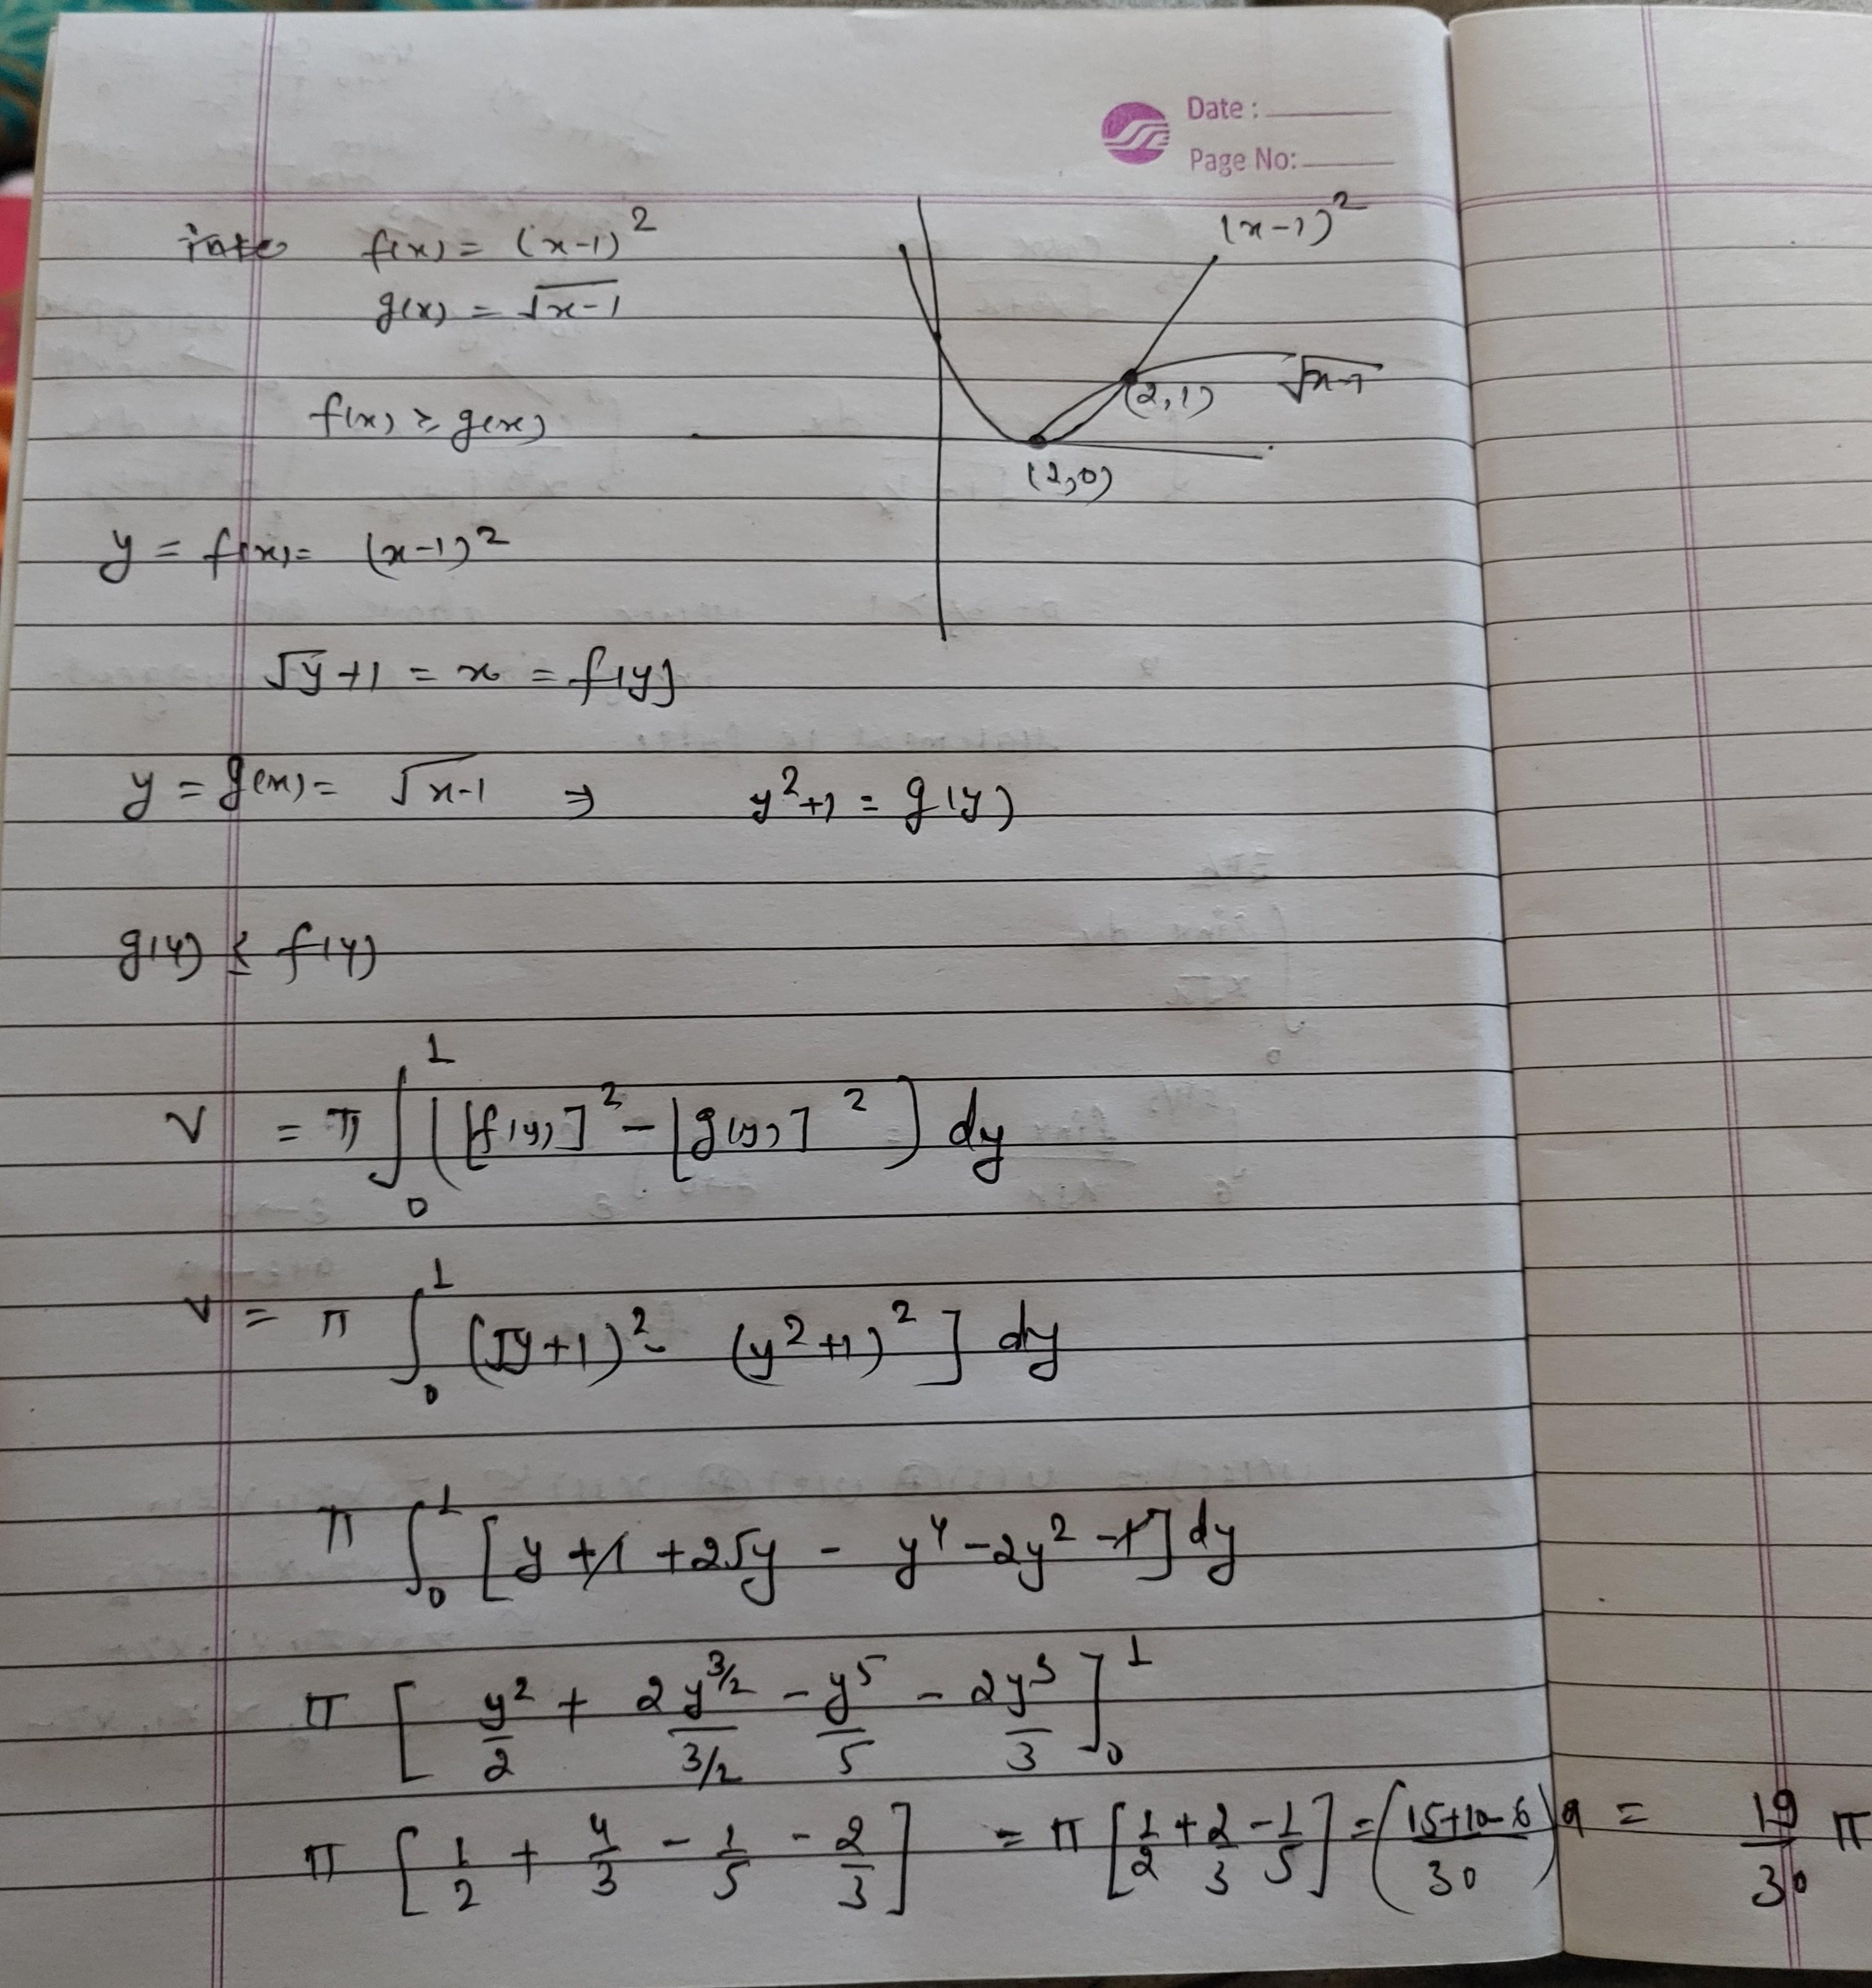 Date :
Page No:
f(x) = (x-1)²
g(x) = √x-1
(x-1)²
√x-1
(2,1)
(2,0)
f(x) ≥ g(x)
y = f(x) = (x-1)²
√y+1 = x = f(y)
y = g(x) = √x-1 ⇒ y²+1 = g(y)
g(y) ≤ f(y)
V = π ∫₀¹ ([f(y)]² - [g(y)]²] dy
V = π ∫₀¹ (√y+1)² - (y²+1)²] dy
π ∫₀¹ [y + 1 + 2√y - y⁴ - 2y² - 1] dy
π [y²/2 + 2y^3/2/3/2 - y⁵/5 - 2y³/3]₀¹
π [1/2 + 4/3 - 1/5 - 2/3] = π [1/2 + 2/3 - 1/5] = (15+10-6/30) π = 19/30 π